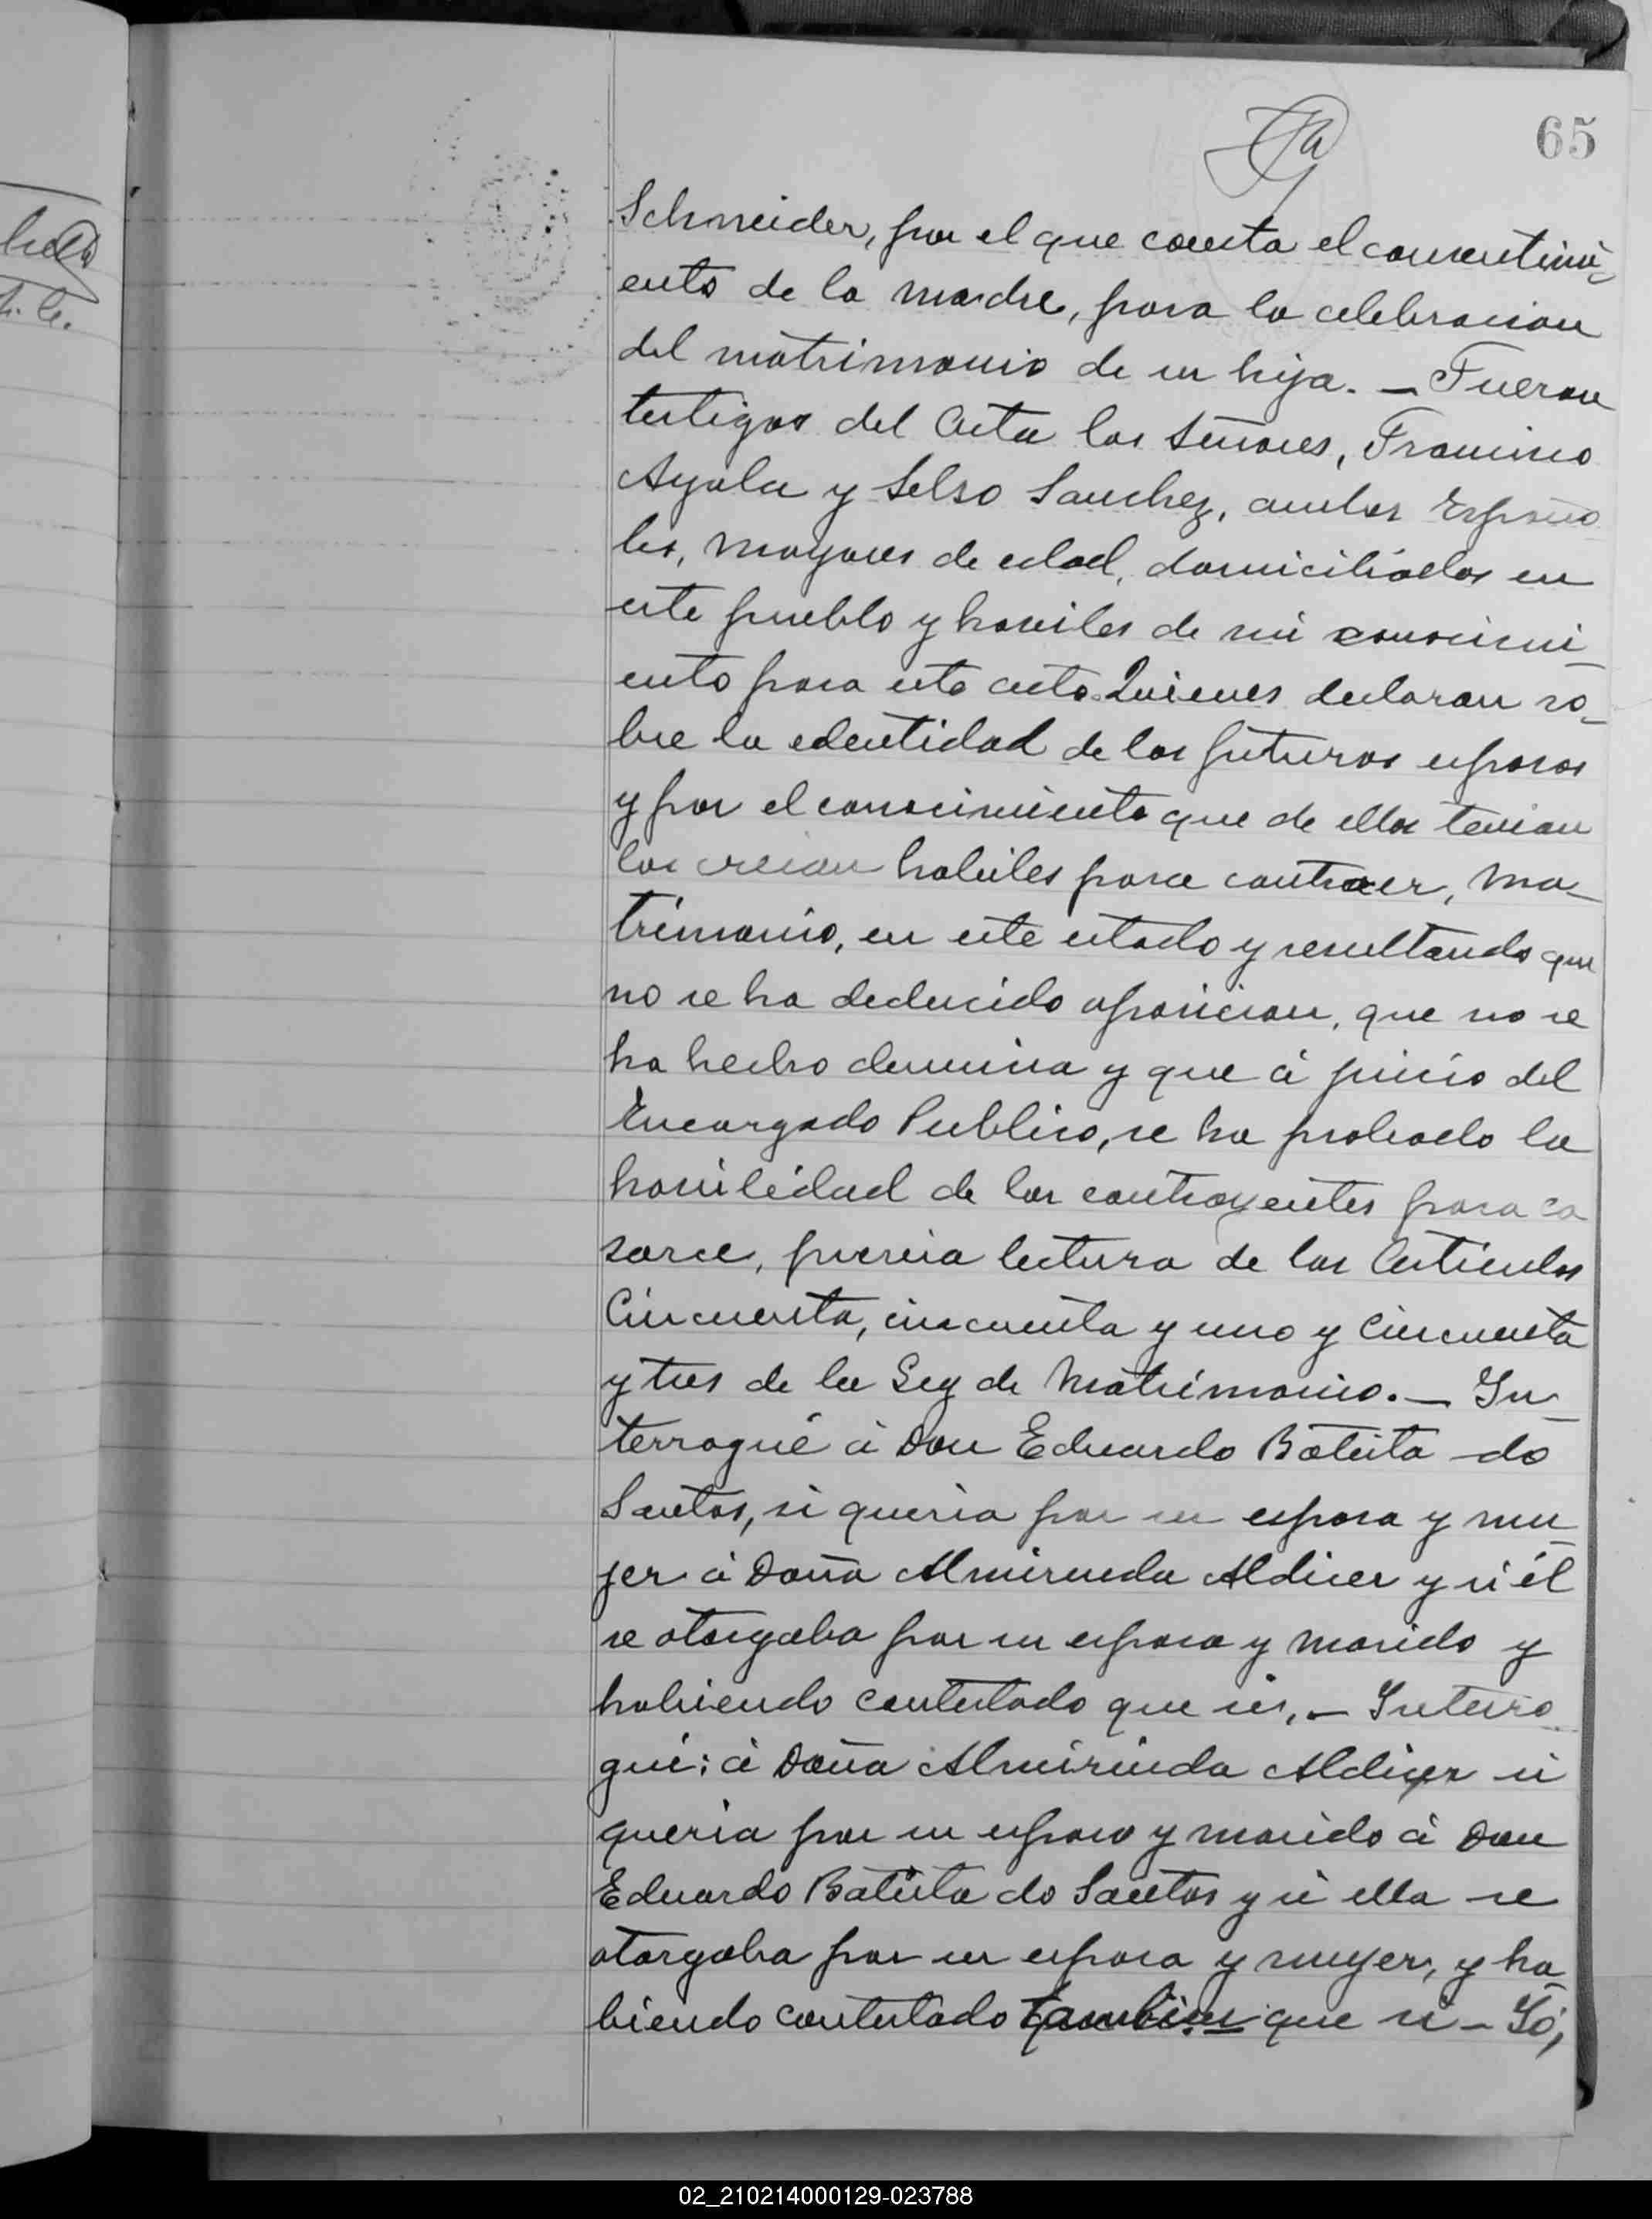 65
Schneider, por el que consta el consentimi-
ento de la madre, para la celebracion
del matrimonio de su hija. — Fueron
testigos del Acta los Señores, Francisco
Ayala y Selso Sanchez, ambos Españo
les, mayores de edad, domiciliados en
este pueblo y haviles de mi conocimi-
ento para este acto. Quienes declaran so-
bre la edentidad de los futuros esposos
y por el conocimiento que de ellos tenian
los creian habiles para contraer, ma-
trimonio, en este estado y resultando que
no se ha deducido oposicion, que no se
ha hecho denuncia y que á juicio del
Encargado Publico, se ha probado la
havilidad de los contrayentes para ca
sarce, previa lectura de los Articulos
Cincuenta, cincuenta y uno y Cincuenta
y tres de la Ley de Matrimonio. — In-
terrogué á Don Eduardo Batista do
Santos, si queria por su esposa y mu-
jer á Doña Almirenda Aldicer y si él
se otorgaba por su esposo y marido y
habiendo contestado que si, — Interro
gué: á Doña Almirinda Aldiger si
queria por su esposo y marido á Don
Eduardo Batista do Santos y si ella se
otorgaba por su esposa y muger, y ha-
biendo contestado tambien que si — Yó,
02_210214000129-023788